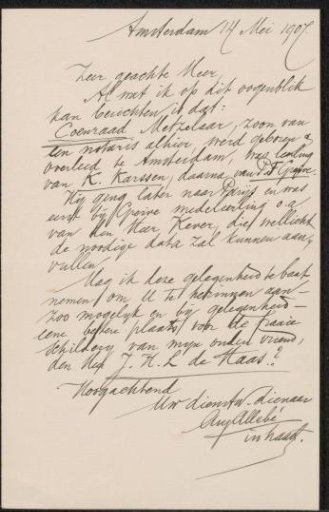 Amsterdam 14 Mei 1907
Zeer geachte Heer,
Al wat ik op dit oogenblik
kan berichten is dat:
Coenraad Metzelaar, zoon van
een notaris alhier, werd geboren &
overleed te Amsterdam, was leerling
van K. Karssen, daarna van P.F. Greive.
Hij ging later naar Parijs en was
eerst bij Greive medeleerling o.a.
van den Heer Kever, die wellicht
de noodige data zal kunnen aan-
vullen.
Mag ik deze gelegenheid te baat
nemen om U te herinneren aan
zoo mogelijk en bij gelegenheid
eene betere plaats voor de fraaie
schilderij van mijn ouden vriend,
den Heer J. H. L. de Haas?
Hoogachtend
Uw dienstw. dienaar
Aug Allebé
in haast.